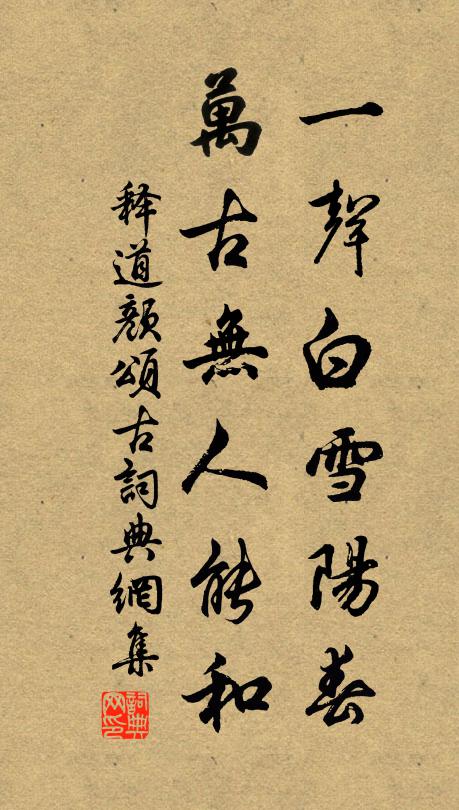 一聲白雪陽春
萬古無人能和
释道顏頌古詞典網集
詞典
网印